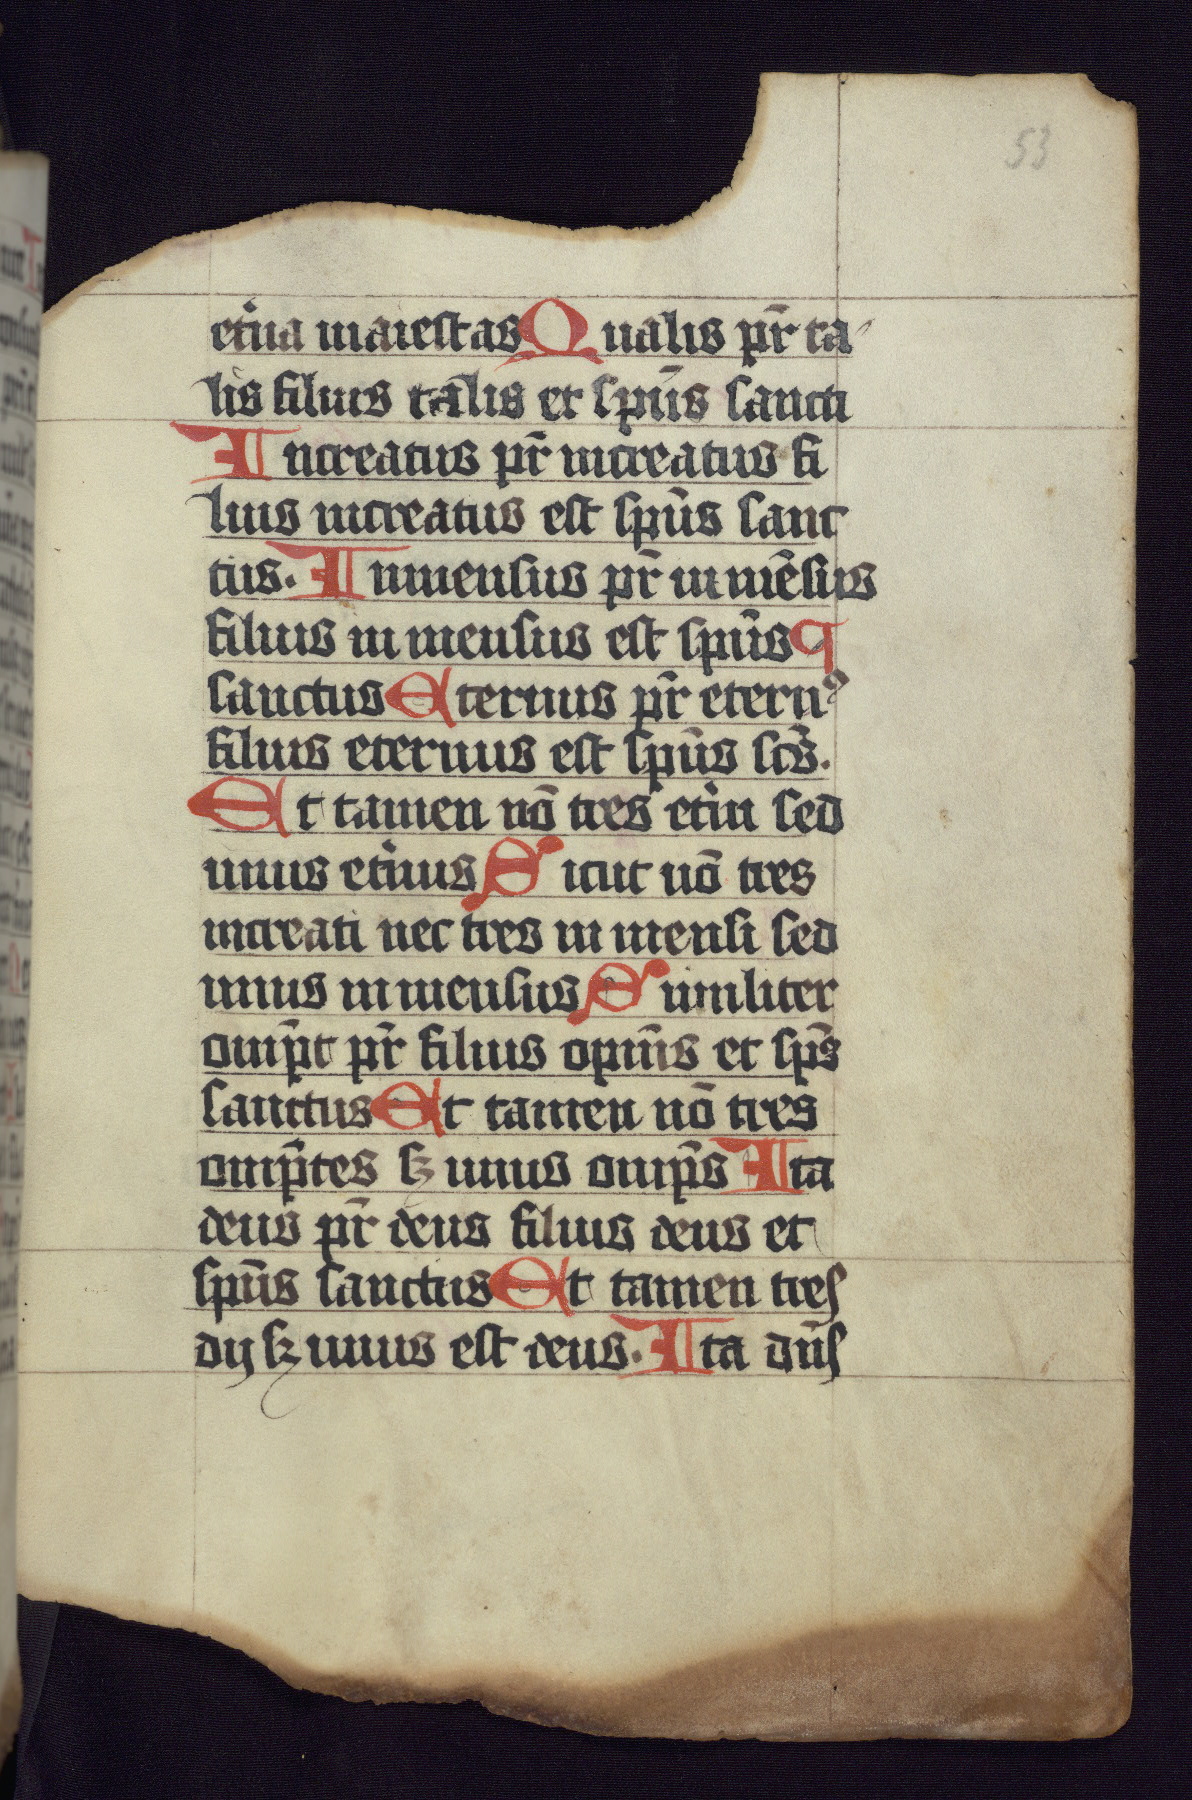 53
et'na maiestas Qualis pr̄ ta
lis filius talis et spūs sancti
Increatus pr̄ increatus fi
lius increatus est spūs sanc
tus. Inmensus pr̄ inmēsus
filius inmensus est spūs ¶
sanctus Eternus pr̄ eternꝰ
filius eternus est spūs scūs.
Et tamen nō tres et'ni sed
unus et'nus Sicut nō tres
increati nec tres inmensi sed
unus inmensus Similiter
omīpt pr̄ filius opīns et spūs
sanctus Et tamen nō tres
omīptes sꝫ unus omīps Ita
deus pr̄ deus filius deus et
spūs sanctus Et tamen tres
dij sꝫ unus est deus. Ita dn̄s